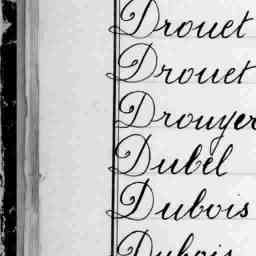 Drouet
Drouet
Drouyer
Dubel
Dubois
Dubois